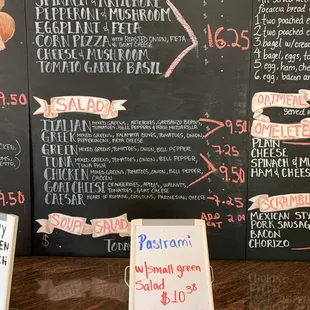 SPINACH & ARTICHOKE
PEPPERONI & MUSHROOM
EGGPLANT & FETA
CORN PIZZA WITH ROASTED ONION, FETA
& GOAT CHEESE
CHEESE & MUSHROOM
TOMATO GARLIC BASIL
16.25
SALAD
ITALIAN MIXED GREENS, ARTICHOKE, GARBANZO BEANS
TOMATOES, BELL PEPPERS & HIGH MOZZARELLA
GREEK MIXED GREENS, KALAMATA OLIVES, TOMATOES, ONION,
PEPPERONCINI, FETA CHEESE
GREEN MIXED GREENS, TOMATOES, ONION, BELL PEPPERS
TUNA MIXED GREENS, TOMATOES, ONION, BELL PEPPER,
TUNA FISH
CHICKEN MIXED GREENS, TOMATOES, ONION, BELL PEPPER,
CHICKEN
GOAT CHEESE CRANBERRIES, APPLES, WALNUTS,
TOMATOES, GOAT CHEESE
CAESAR HEARTS OF ROMAINE, CROUTONS, PARMESAN CHEESE
9.50
7.25
9.50
7.25
ADD
SOUP
SALAD
TODAY
$
Pastrami
w/small green
Salad
$10
9.50
9.50
7.50
focaccia bread
1. two poached e
2. two poached
3. bagel w/crea
4. bagel, eggs
5. egg, tomato
6. egg, bacon
OATMEAL
served
OMELETTE
PLAIN
CHEESE
SPINACH & MU
HAM & CHEES
SCRAMBL
MEXICAN STY
PORK SAUSAG
BACON
CHORIZO